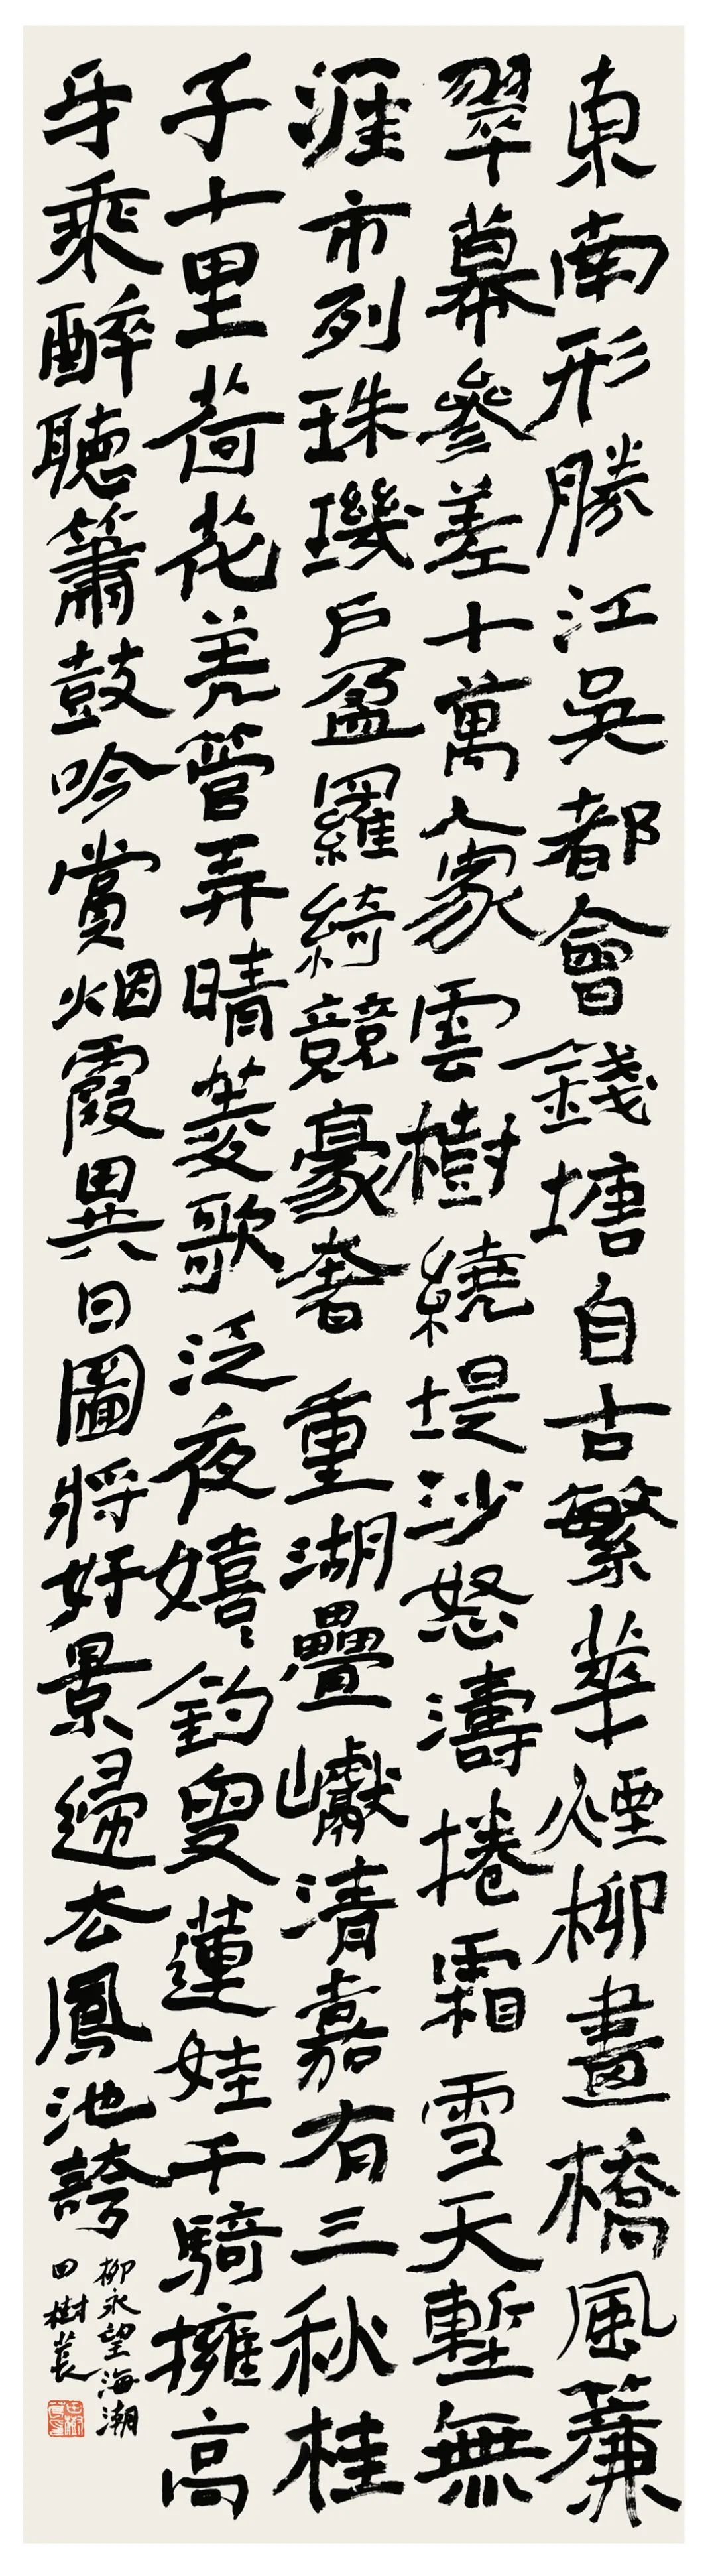 東南形勝江吳都會錢塘自古繁華煙柳畫橋風簾
翠幕參差十萬人家雲樹繞堤沙怒濤捲霜雪天塹無
涯市列珠璣戶盈羅綺競豪奢重湖疊巘清嘉有三秋桂
子十里荷花羌管弄晴菱歌泛夜嬉〻釣叟蓮娃千騎擁高
牙乘醉聽簫鼓吟賞烟霞異日圖將好景歸去鳳池誇
柳永望海潮
田樹萇